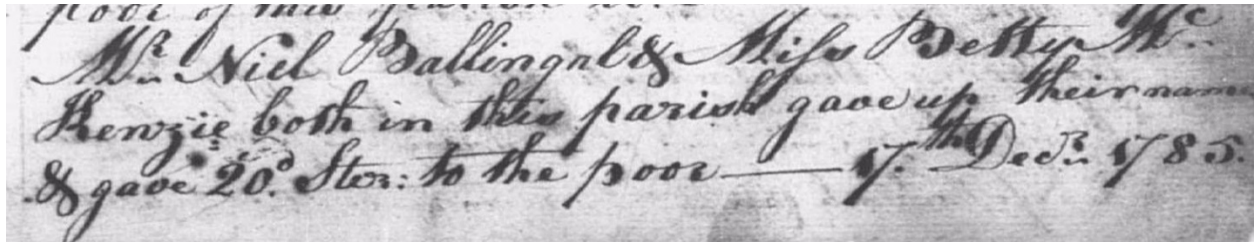 poor of this parish
Mr. Niel Ballingal & Miss Betty Mc.
Kenzie both in this parish gave up their name
& gave 20.d Ster: to the poor — 17.th Decr. 1785.